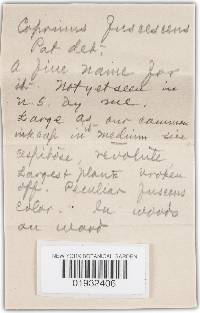 Coprinus fuscescens
Pat. det.
A fine name for
it. Not yet seen in
N.S. by me.
Large as our common
inkcap in medium size
cespitose, revolute,
Largest plants broken
off. Peculiar fuscous
color. In woods
on wood
NEW YORK BOTANICAL GARDEN
01932406